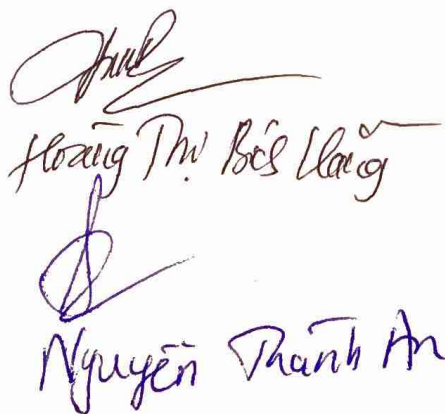 Hoàng Thị Bích Hằng
Nguyễn Thành An